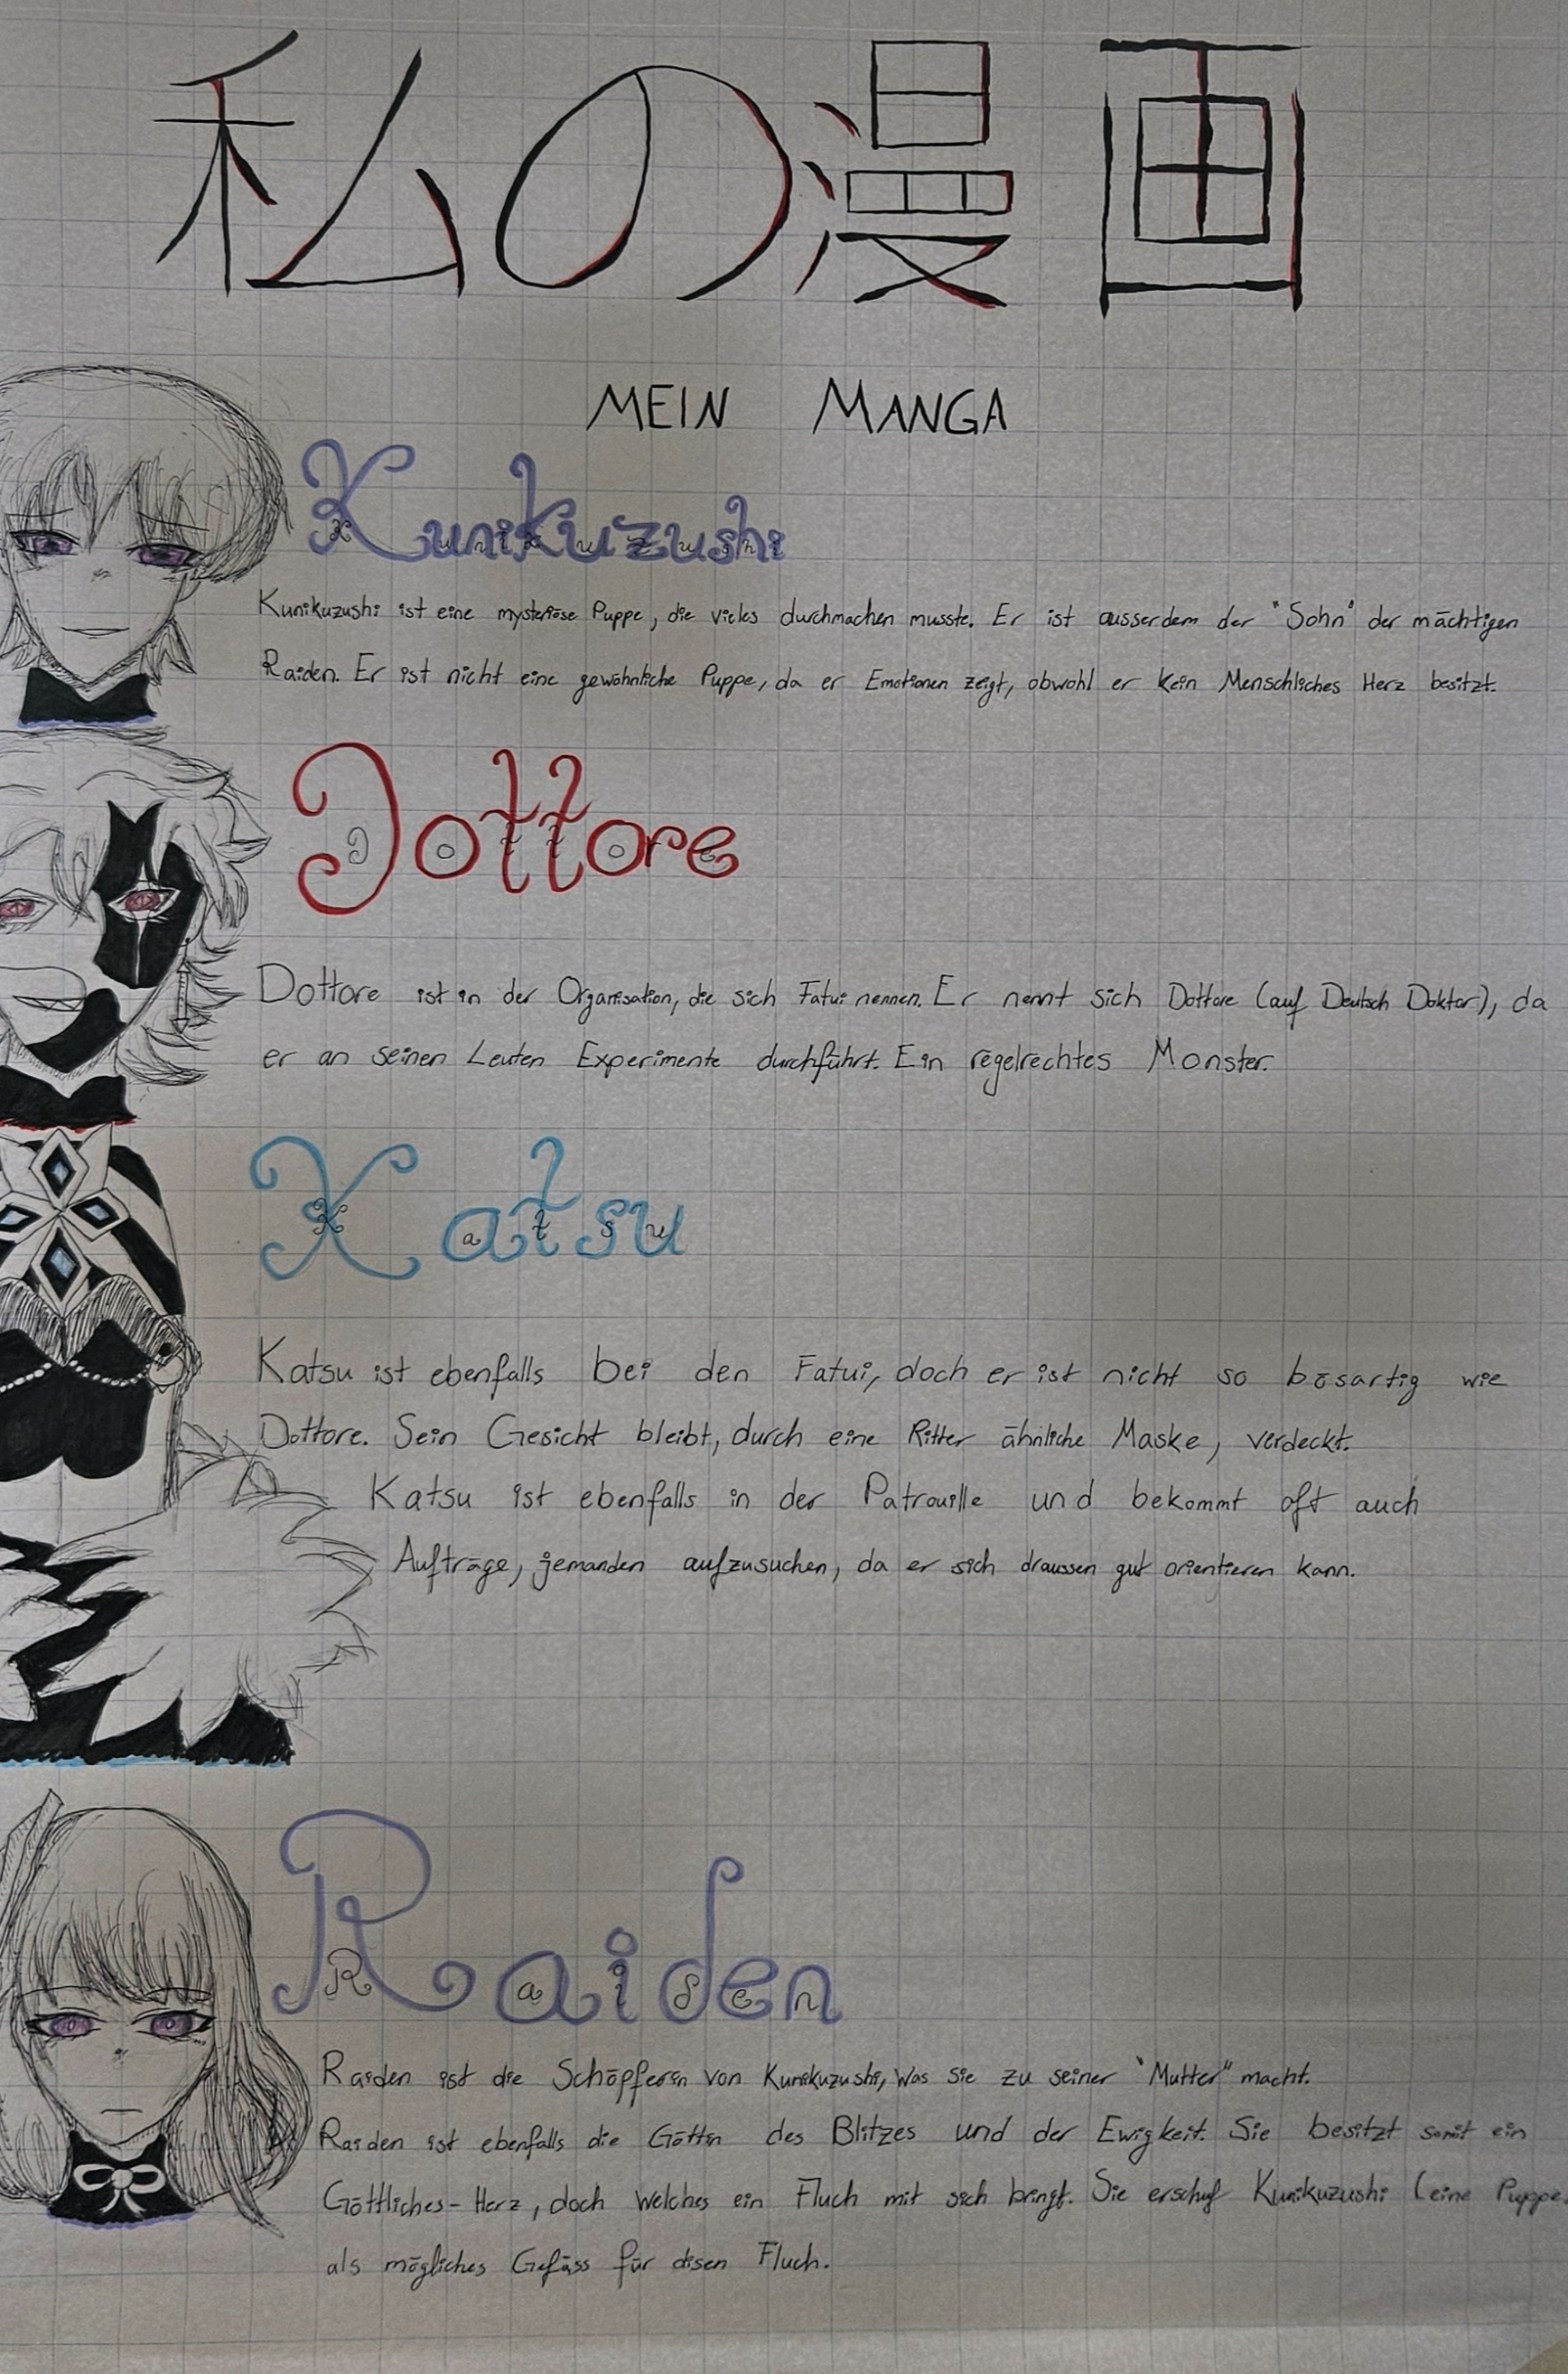 私の漫画
MEIN MANGA
Kunikuzushi
Kunikuzushi ist eine mysteriöse Puppe, die vieles durchmachen musste. Er ist ausserdem der "Sohn" der mächtigen
Raiden. Er ist nicht eine gewöhnliche Puppe, da er Emotionen zeigt, obwohl er kein Menschliches Herz besitzt.
Dottore
Dottore ist in der Organisation, die sich Fatui nennen. Er nennt sich Dottore (auf Deutsch Doktor), da
er an seinen Leuten Experimente durchführt. Ein regelrechtes Monster.
Katsu
Katsu ist ebenfalls bei den Fatui, doch er ist nicht so bösartig wie
Dottore. Sein Gesicht bleibt, durch eine Ritter ähnliche Maske, verdeckt.
Katsu ist ebenfalls in der Patrouille und bekommt oft auch
Aufträge, jemanden aufzusuchen, da er sich draussen gut orientieren kann.
Raiden
Raiden ist die Schöpferin von Kunikuzushi, Was sie zu seiner "Mutter" macht.
Raiden ist ebenfalls die Göttin des Blitzes und der Ewigkeit. Sie besitzt somit ein
Göttliches-Herz, doch Welches ein Fluch mit sich bringt. Sie erschuf Kunikuzushi (eine Puppe
als mögliches Gefäss für disen Fluch.